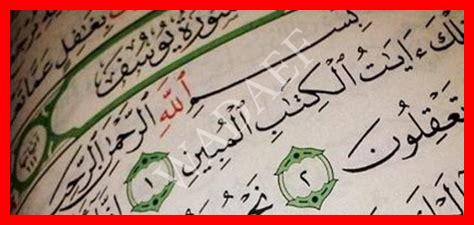 بِغَٰفِلٍ عَمَّا
سُورَةُ يُوسُفَ
بِسْمِ ٱللَّهِ ٱلرَّحْمَٰنِ ٱلرَّحِيمِ
تِلْكَ ءَايَٰتُ ٱلْكِتَٰبِ ٱلْمُبِينِ ١ إِنَّا
تَعْقِلُونَ ٢ نَحْنُ
WADAEF